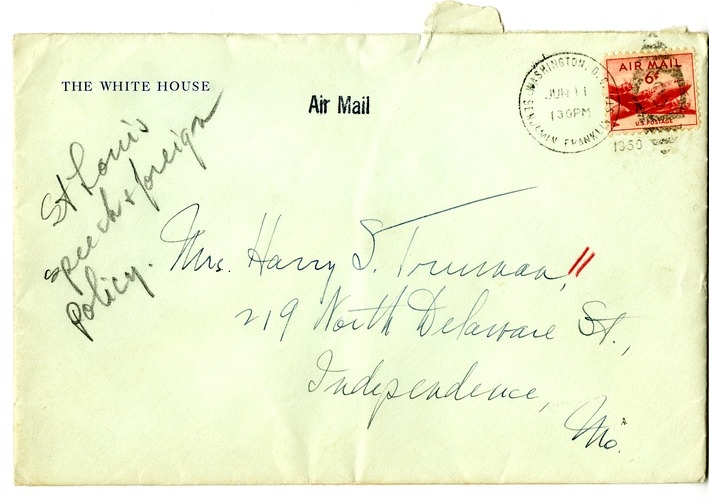 THE WHITE HOUSE
Air Mail
WASHINGTON, D.C.
JUN 11
130 PM
1950
BENJAMIN FRANKLIN
AIR MAIL
6¢
U.S. POSTAGE
St Louis
speech & foreign
policy.
Mrs. Harry S. Truman,
219 North Delaware St.,
Independence,
Mo.